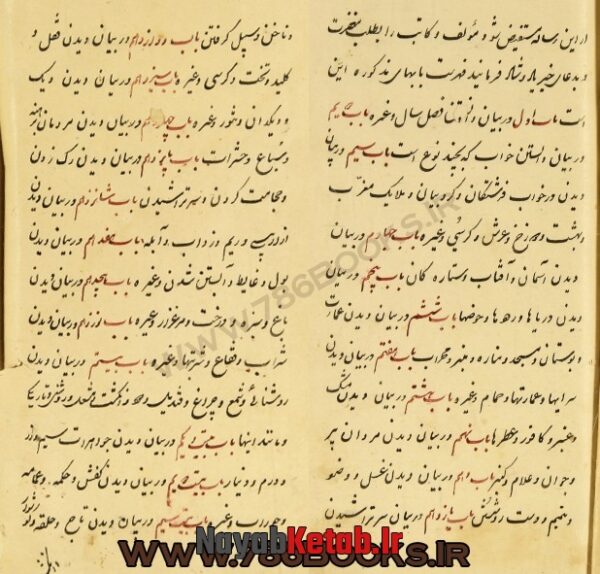 از این رساله مستفیض شود مؤلف و کاتب را بطلب مغفرت
و بدعای خیر یاد و شاد فرمایند فهرست بابهای مذکوره این
است باب اول در بیان دانستن فصل سال و غیره باب دویم
در بیان دانستن خواب که بچند نوع است باب سیم در بیان
دیدن در خواب فرشتگان و کروبیان و ملایک مقرب
و بهشت و دوزخ و عرش و کرسی و غیره باب چهارم در بیان
دیدن آسمان و آفتاب و ستاره کان باب پنجم در بیان
دیدن دریاها و رودها و حوضها باب ششم در بیان دیدن عمارت
و بوستان و مسجد و مناره و منبر و محراب باب هفتم در بیان دیدن
سرایها و عمارتها و حمام و غیره باب هشتم در بیان دیدن مشک
و عنبر و کافور و عطرها باب نهم در بیان دیدن مردان پیر
و جوان و غلام و کنیز باب دهم در بیان دیدن غسل و وضو
و تیمم و دست و رو شستن باب یازدهم در بیان سر تراشیدن
و ناخن و سبیل گرفتن باب دوازدهم در بیان دیدن قفل و
کلید و تخت و کرسی و غیره باب سیزدهم در بیان دیدن دیک
و دیکدان و تنور و غیره باب چهاردهم در بیان دیدن مردمان
و سباع و حشرات باب پانزدهم در بیان دیدن رک زدن
و حجامت کردن و سر تراشیدن باب شانزدهم در بیان دیدن
ریم و زرداب و آبله باب هفدهم در بیان دیدن
بول و غایط و آبستن شدن و غیره باب هیجدهم در بیان دیدن
باغ و سبزه و درخت و مرغزار و غیره باب نوزدهم در بیان دیدن
شراب و فقاع و شربتها و غیره باب بیستم در بیان دیدن
روشنائی و شمع و چراغ و قندیل و انکشت و شعله و روشنی و تاریکی
و مانند اینها باب بیست و یکم در بیان دیدن جواهرات سیم و زر
و درم و دینار باب بیست و دویم در بیان دیدن کفش و عمامه
و جوراب و غیره باب بیست و سیم در بیان دیدن تاج و حلقه
WWW.786BOOKS.IR
NayabKetab.Ir
WWW.786BOOKS.IR